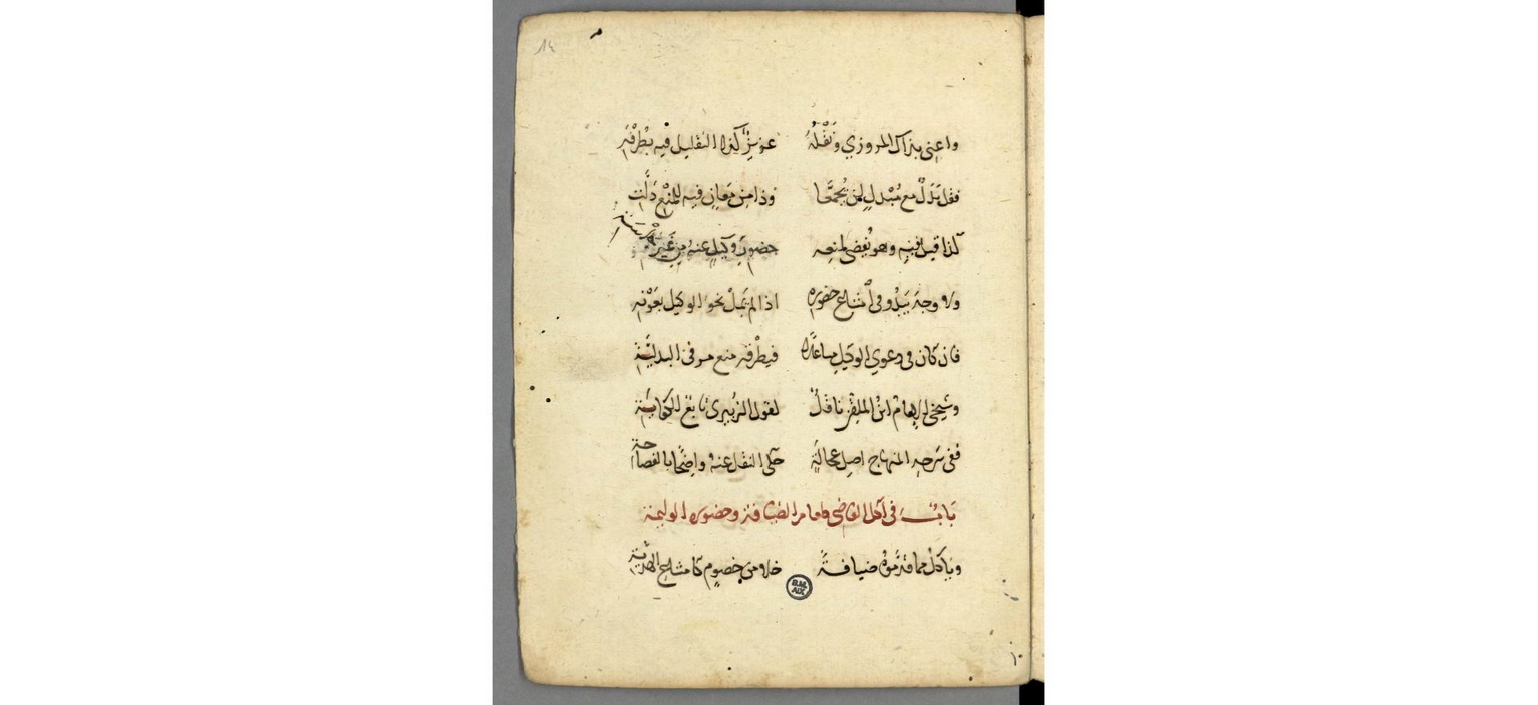 ١٤
واعني بذاك المروزي ونقله عزيز كذا التقليل فيه بطرفة
فقل بذل مع مبدل لن يجمعا وذا من معان فيه للمنع دلت
كذا قيل فيه وهو يقضي لمنعه حضور وكيل عنه من غير
ولا وجه يبدو في امتناع حضوره اذا لم يمل نحو الوكيل بعونه
فان كان في دعوي الوكيل مساعدا فيطرقه منع
وشيخي الامام ابن الملقن ناقل لقول الزبيري تابع
ففي شرحه المنهاج اصل عجالة حكى النقل عنه واضحا بالفصاحة
باب في اكل القاضي طعام الضيافة وحضوره الوليمة
وياكل مما قدموه ضيافة خلا من خصوم كامتناع الهدية
B.M. AIX